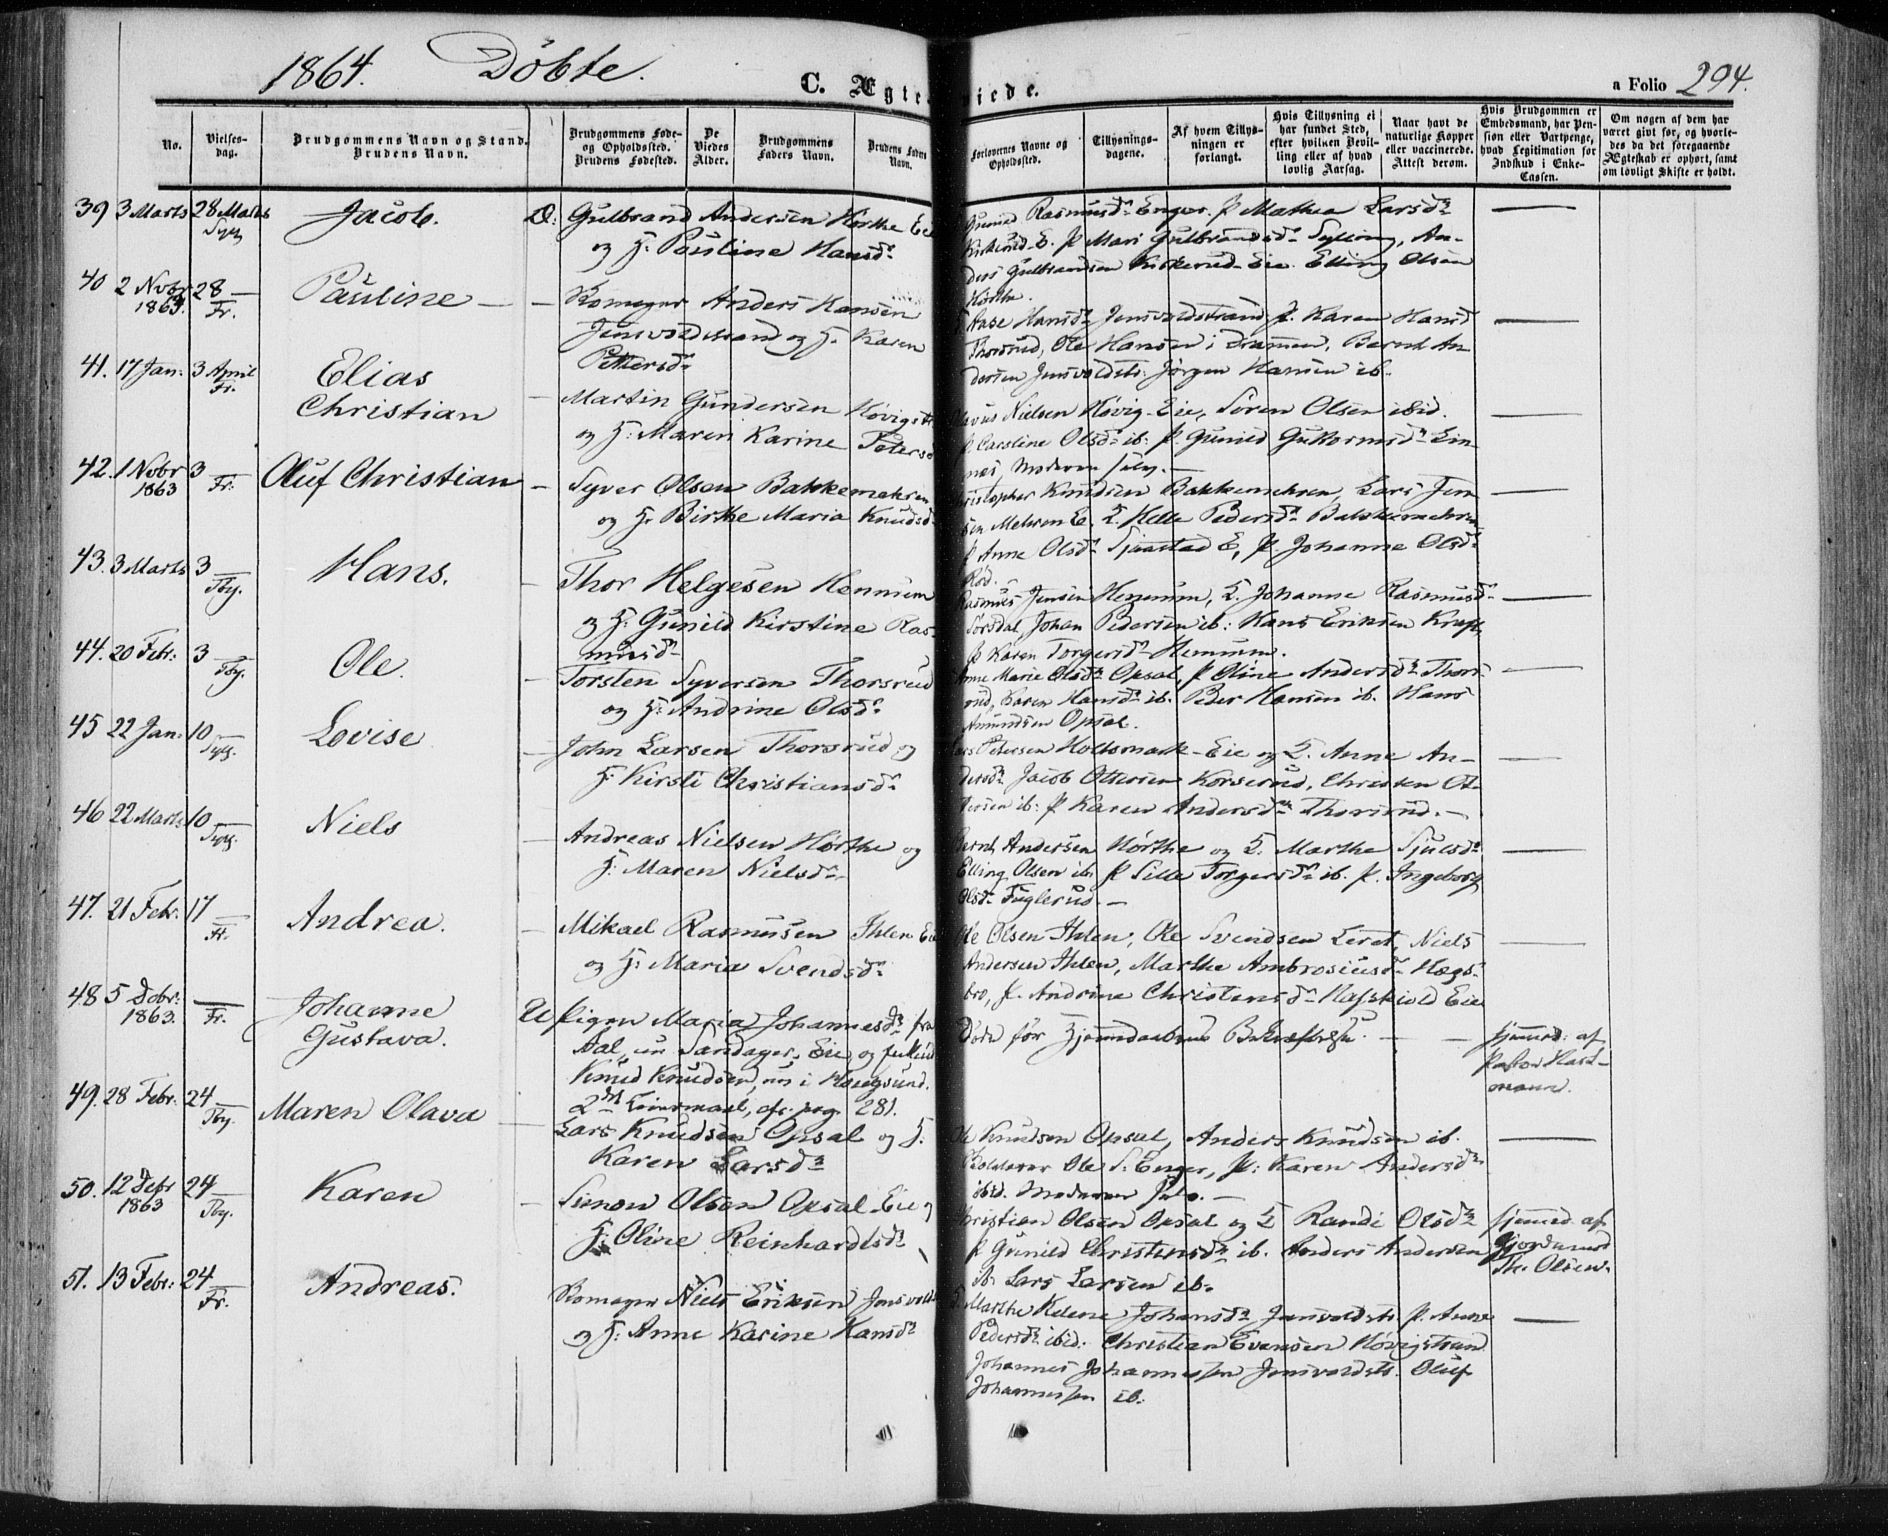 1864. Döbte.
C. Ægteviede.
a Folio 294.
No.
Vielses-
dag.
Brudgommens Navn og Stand.
Brudens Navn.
Brudgommens Føde-
og Opholdssted.
Brudens Fødested.
De
Viedes
Alder.
Brudgommens
Faders Navn.
Brudens Faders
Navn.
Forlovernes Navne og
Opholdssted.
Tillysnings-
dagene.
Af hvem Tillys-
ningen er
forlangt.
Hvis Tillysning ei
har fundet Sted,
efter hvilken Bevil-
ling eller af hvad
lovlig Aarsag.
Naar havt de
naturlige Kopper
eller vaccinerede.
Attest derom.
Hvis Brudgommen er
Embedsmand, har Pen-
sion eller Vartpenge,
hvad Legitimation for
Indskud i Enke-
Cassen.
Om nogen af dem har
været givt før, og hvorle-
des da det foregaaende
Ægteskab er ophørt, samt
om lovligt Skifte er holdt.
39 3 Marts 28 Marts Jacob. Æ: Gulbrand Andersen Hørthe Eie
Syll. og H: Pauline Hansdr
Gunild Rasmusdr Enger. P. Mathea Larsdr
Kirkerud-E. P Mari Gulbrandsdr Sylling, An-
ders Gulbrandsen Kirkerud-Eie. Elling Olsen
Hørthe.
40 2 Novbr 28 Pauline - - Anders Hansen
1863. Fr. Jensvoldstrand og H. Karen
Pettersdr
Aase Hansdr Jensvoldstrand P. Karen Hansd
Thorsrud, Ole Hansen i Drammen, Bernt An-
dersen Jensvoldstr: Jørgen Hansen ib.
41. 17 Jan: 3 April Elias
Fr. Christian - Martin Gundersen Høvigstr
og H: Maren Karine Petersd
Nielsen Høvig-Eie, Sören Olsen ibid.
P. Caroline Olsdr ib: P. Gunild Guttormsdr Lin-
nes, Moderen selv.
42. 1 Novbr 3 Oluf Christian - Syver Olsen Bakkemehren
1863 Fr: og H. Birthe Maria Knudsd
Christopher Knudsen Bakkemehren, Lars Jen-
sen Mehren E. Helle Pedersdr Bakkemehren
P Anne Olsdr Sjaastad E, P Johanne Olsdr
Rød.
43. 3 Marts 3 Hans. - Thor Helgesen Hennum
Tby. og H. Gunild Kirstine Ras-
musdr
Rasmus Jensen Hennum, Johanne Rasmusdr
Sørsdal, Johan Pedersen ib: Hans Eriksen
P Karen Torgersdr Hennum.
44. 20 Febr: 3 Ole. - Torsten Syversen Thorsrud
Tby. og H: Andrine Olsdr
Anne Marie Olsdr Opsal, P Oline Andersdr Thors-
rud, Karen Hansdr ib. Peder Hansen ib. Hans
Amundsen Opsal.
45 22 Jan: 10 Lovise - John Larsen Thorsrud og
Syll. H. Kirsti Christiansdr
Lars Petersen Holtsmark-Eie og Anne An-
dersdr Jacob Ottersen Korserud, Christen Ot-
tersen ib: P Karen Andersdr Thorsrud. -
46 22 Marts 10 Niels - Andreas Nielsen Hørthe og
Syll. H. Maren Nielsdr
Bernt Andersen Hørthe og Marthe Sjulsdr
Elling Olsen ib. P Sille Torgersdr ib. P. Ingeborg
Olsdr Fuglerud. -
47. 21 Febr. 17 Andrea. - Mikael Rasmusen Ihlen Eie
Fr. og H: Maria Svendsdr
Ole Olsen Ihlen, Ole Svendsen Leret, Niels
Andersen Ihlen, Marthe Ambrosiusdr Hægs-
bro, P. Andrine Christensdr Eie
48 5 Dcbr: Johanne U Pigen Maria Johannesdr fra
1863. Fr. Gustava. Aal, nu Sandager-Eie og
Knud Knudsen, nu i Haugsund.
2det Leiermaal, cfr. pag. 281.
Døde før Hjemmedaabens Bekræftelse. - -
hjemmed: af
Pastor Hart-
mann.
49. 28 Febr. 24 Maren Olava - Lars Knudsen Opsal og H:
Tby. Karen Larsdr
Ole Knudsen Opsal, Anders Knudsen ib.
Ole S. Enger, P: Karen Andersdr
ibid. Moderen selv. -
50. 12 Decbr 24 Karen - Simon Olsen Opsal-Eie og
1863 Tby. H: Oline Reinhardtsdr
Christian Olsen Opsal og Randi Olsdr
P Gunild Christensdr ib. Anders Andersen
ib. Lars Larsen ib.
hjemmed af
Gjordemod
Th. Olsen.
51. 13 Febr: 24 Andreas. Niels Eriksen Jensvolds
Fr. og H: Anne Karine Hansdr
Marthe Helene Johansdr Jensvoldstr. P. Anne
Pedersdr ibid. Christian Evensen Høvigstrand
Johannes Johannessen Jensvoldstr. Oluf
Johannessen ib.